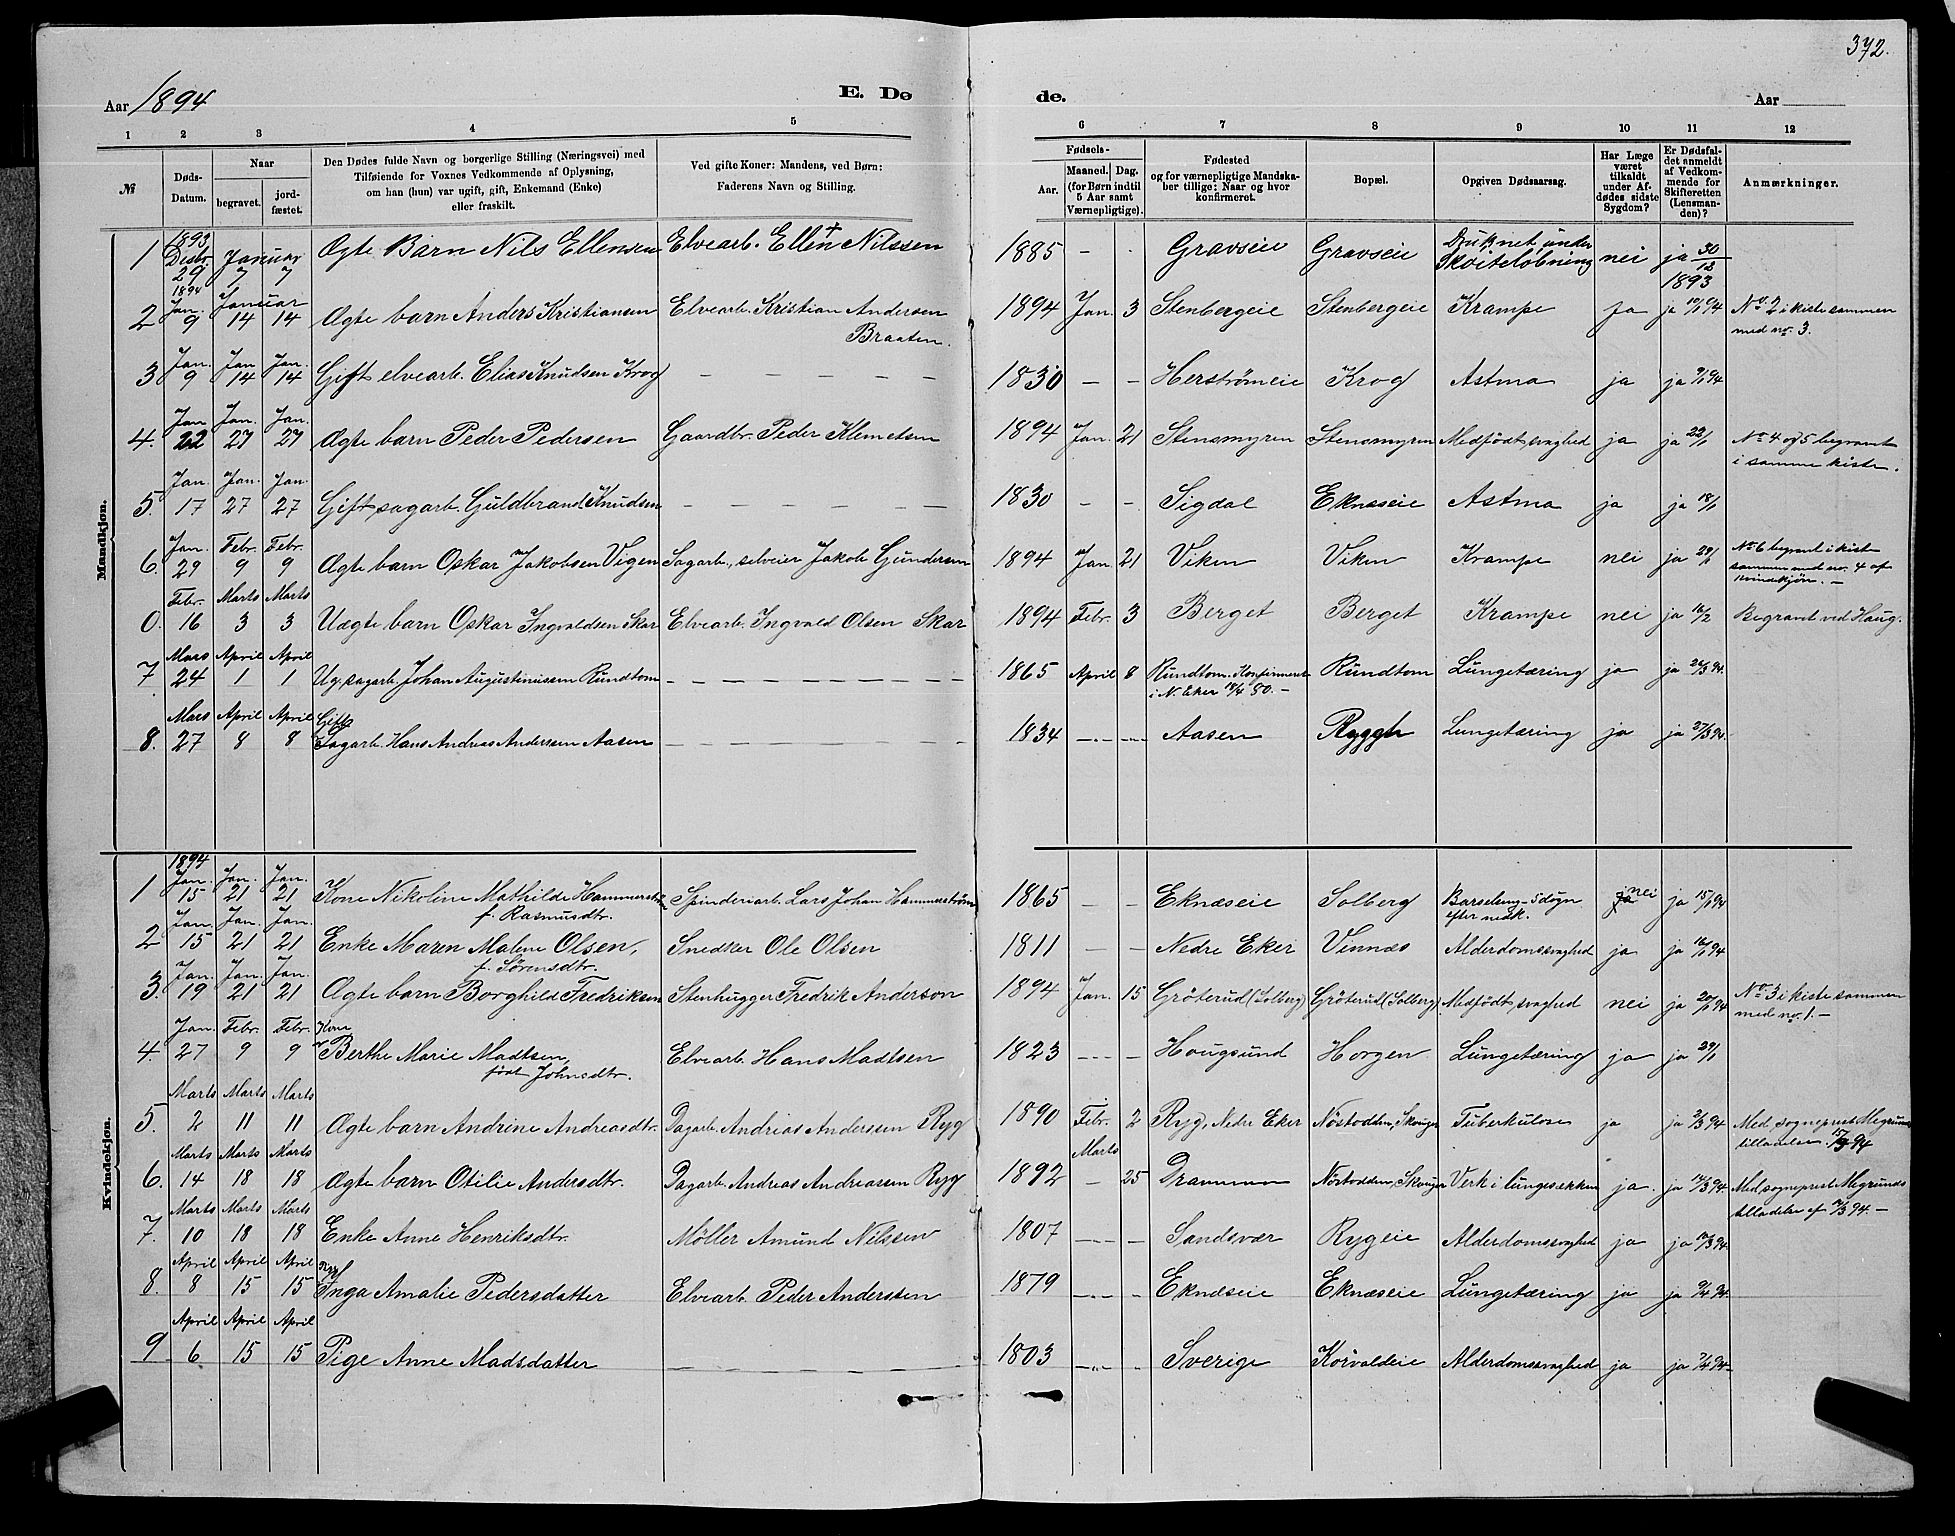 372.
Aar 1894 E. Dø
de. Aar
1 2 3 4 5
6 7 8 9 10 11 12
№ Døds-Datum. Naar begravet. jord-fæstet. Den Dødes fulde Navn og borgerlige Stilling (Næringsvei) med Tilføiende for Voxnes Vedkommende af Oplysning, om han (hun) var ugift, gift, Enkemand (Enke) eller fraskilt. Ved gifte Koner: Mandens, ved Børn: Faderens Navn og Stilling.
Fødsels- Aar. Maaned. Dag. (for Børn indtil 5 Aar samt Værnepligtige). Fødested og for værnepligtige Mandskaber tillige: Naar og hvor konfirmeret. Bopæl. Opgiven Dødsaarsag. Har Læge været tilkaldt under Afdødes sidste Sygdom? Er Dødsfaldet anmeldt af Vedkommende for Skifteretten (Lensmanden)? Anmærkninger.
Mandkjøn.
1 1893 Desbr. 29 Januar 7 7 Ægte Barn Nils Ellensen Elvearb. Ellen Nilssen 1885 - - Gravseie Gravseie Druknet under Skøiteløbning nei ja 30/12 1893
2 1894 Jan. 9 Januar 14 14 Ægte barn Anders Kristiansen Elvearb. Kristian Andersen Braaten. 1894 Jan. 3 Stenbergeie Stenbergeie Krampe ja ja 10/1 94 No. 2 i kiste sammen med no. 3.
3 Jan. 9 Jan 14 Jan. 14 Gift elvearb. Elias Knudsen Krog - - - - - 1830 - - Herstrømeie Krog Astma ja ja 9/1 94
4. Jan 22 Jan. 27 Jan. 27 Ægte barn Peder Pedersen Gaardbr. Peder Klemetsen 1894 Jan. 21 Stensmyren Stensmyren Medfødt svaghed ja ja 22/1 No 4 og 5 begravet i samme kiste.
5. Jan. 17 Jan. 27 Jan. 27 Gift sagarb. Guldbrand Knudsen - - - - - 1830 - - Sigdal Eknæseie Astma ja ja 18/1
6. Jan. 29 Febr. 9 Febr. 9 Ægte barn Oskar Jakobsen Vigen Sagarb., selveier Jakob Gundersen 1894 Jan 21 Viken Viken Krampe nei ja 29/1 No 6 begravet i kiste sammen med no. 4 af kvindekjøn. -
0. Febr. 16 Marts 3 Marts 3 Uægte barn Oskar Ingvaldsen Skar Elvearb. Ingvald Olsen Skar 1894 Febr. 3 Berget Berget Krampe nei ja 16/2 Begravet ved Haug.
7 Mars 24 April 1 April 1 Ug. sagarb. Johan Augustinussen Rundtom - - - - - 1865 April 8 Rundtom. Konfirmeret i N. Eker 80. - Rundtom Lungetæring ja ja 26/3 94.
8. Mars 27 April 8 April 8 Gift Sagarb. Hans Andreas Anderssen Aasen - - - - - 1834 - - Aasen Ryggh Lungetæring ja ja 27/3 94.
Kvindekjøn.
1 1894 Jan. 15 Jan. 21 Jan. 21 Kone Nikoline Mathilde Hammerstrøm f. Rasmusdtr. Spinderiarb. Lars Johan Hammerstrøm 1865 - - Eknæseie Solberg Barseleng - 5 døgn efter nedk. ja nei ja 15/1 94
2 Jan. 15 Jan. 21 Jan. 21 Enke Maren Malene Olsen, f. Sørensdtr. Snedker Ole Olsen 1811 - - Nedre Eker Vinnæs Alderdomssvaghed ja ja 16/1 94
3. Jan. 19 Jan. 21 Jan. 21 Ægte barn Borghild Fredriksen Stenhugger Fredrik Anderson 1894 Jan. 15 Grøterud (Solberg) Grøterud (Solberg) Medfødt svaghed nei ja 20/1 94 No. 3 i kiste sammen med no. 1. -
4. Jan. 27 Febr. 9 Febr. 9 Kone Berthe Marie Madtsen, født Johnsdtr. Elvearb. Hans Madtsen 1823 - - Hougsund Horgen Lungetæring ja ja 29/1
5. Marts 2 Marts 11 Marts 11 Ægte barn Andrine Andreasdtr. Dagarb. Andreas Anderssen Ryg 1890 Febr. 2 Ryg, Nedre Eker Nøstodden, Skouger Tuberkulose ja ja 2/3 94 Med sogneprest Megrunds tilladelse 94
6. Marts 14 Marts 18 Marts 18 Ægte barn Otilie Andersdtr. Dagarb. Andreas Andreassen Ryg 1892 Marts - 25 Drammen Nøstodden, Skouger Verk i lungesækken ja. ja 14/3 94. Med sogneprest Megrunds tilladelse af 94. -
7. Marts 10 Marts 18 Marts 18 Enke Anne Henriksdtr. Møller Amund Nilssen 1807 - - Sandsvær Rygeie Alderdomssvaghed ja ja 10/3 94
8. April 8 April 15 April 15 Pige Inga Amalie Pedersdatter Elvearb. Peder Anderssen 1879 - - Eknæseie Eknæseie Lungetæring ja ja 9/4 94.
9 April 6 April 15 April 15 Pige Anne Madsdatter - - - 1803 - - Sverige Korvaldeie Alderdomssvaghed ja ja 7/4 94 -